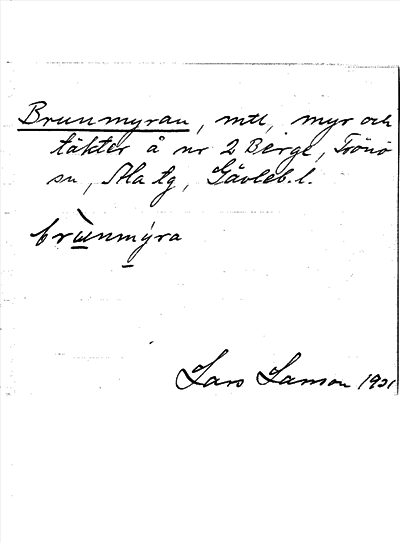 Brunmyran, mtl, myr och
täkter å nr 2 Berge, Trönö
sn, Ala tg, Gävleb.l.
brùnmýra
Lars Larsson 1921